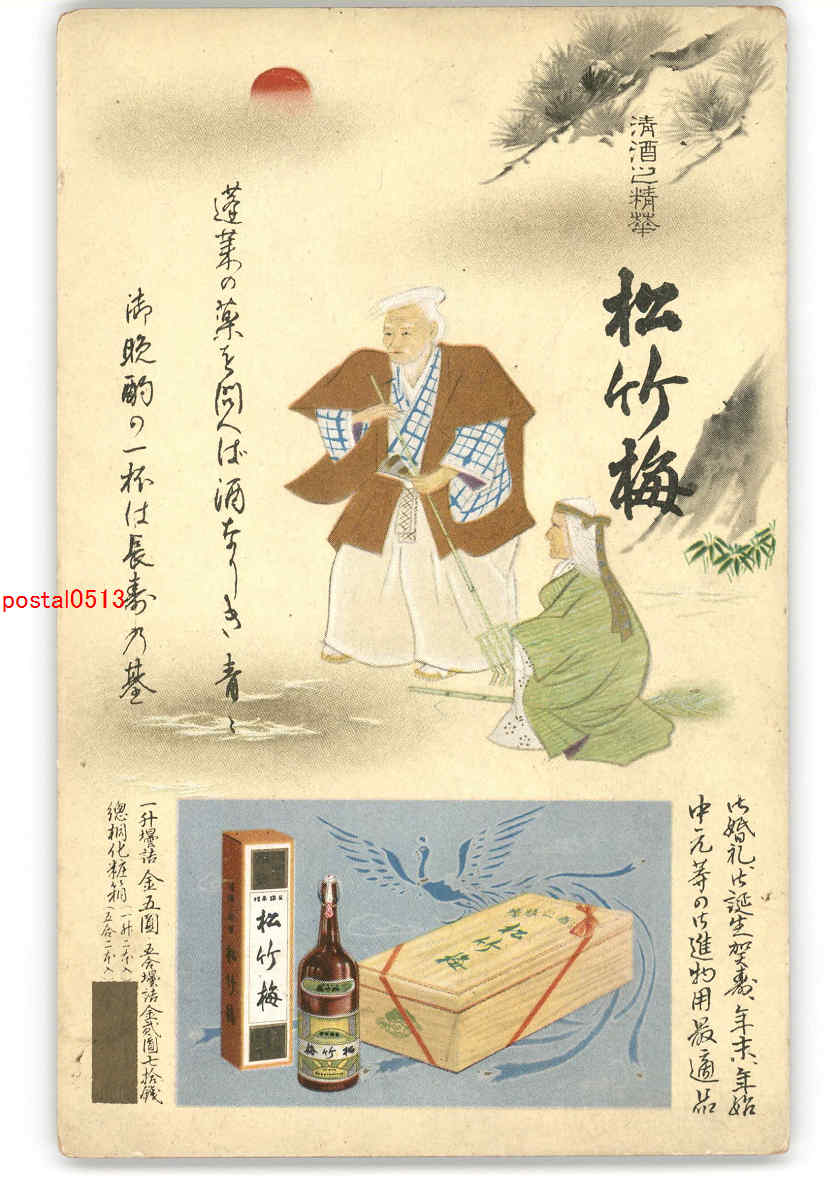 清酒之精華
松竹梅
蓬莱の薬を問へば酒なりき 青々
御晩酌の一杯は長寿乃基
postal0513
御婚礼、御誕生賀寿、年末、年始
中元等の御進物用最適品
松竹梅
松竹梅
松竹梅
松竹梅
一升壜詰 金五圓 五合壜詰金貳圓七拾錢
總桐化粧箱(一升二本入)(五合二本入)